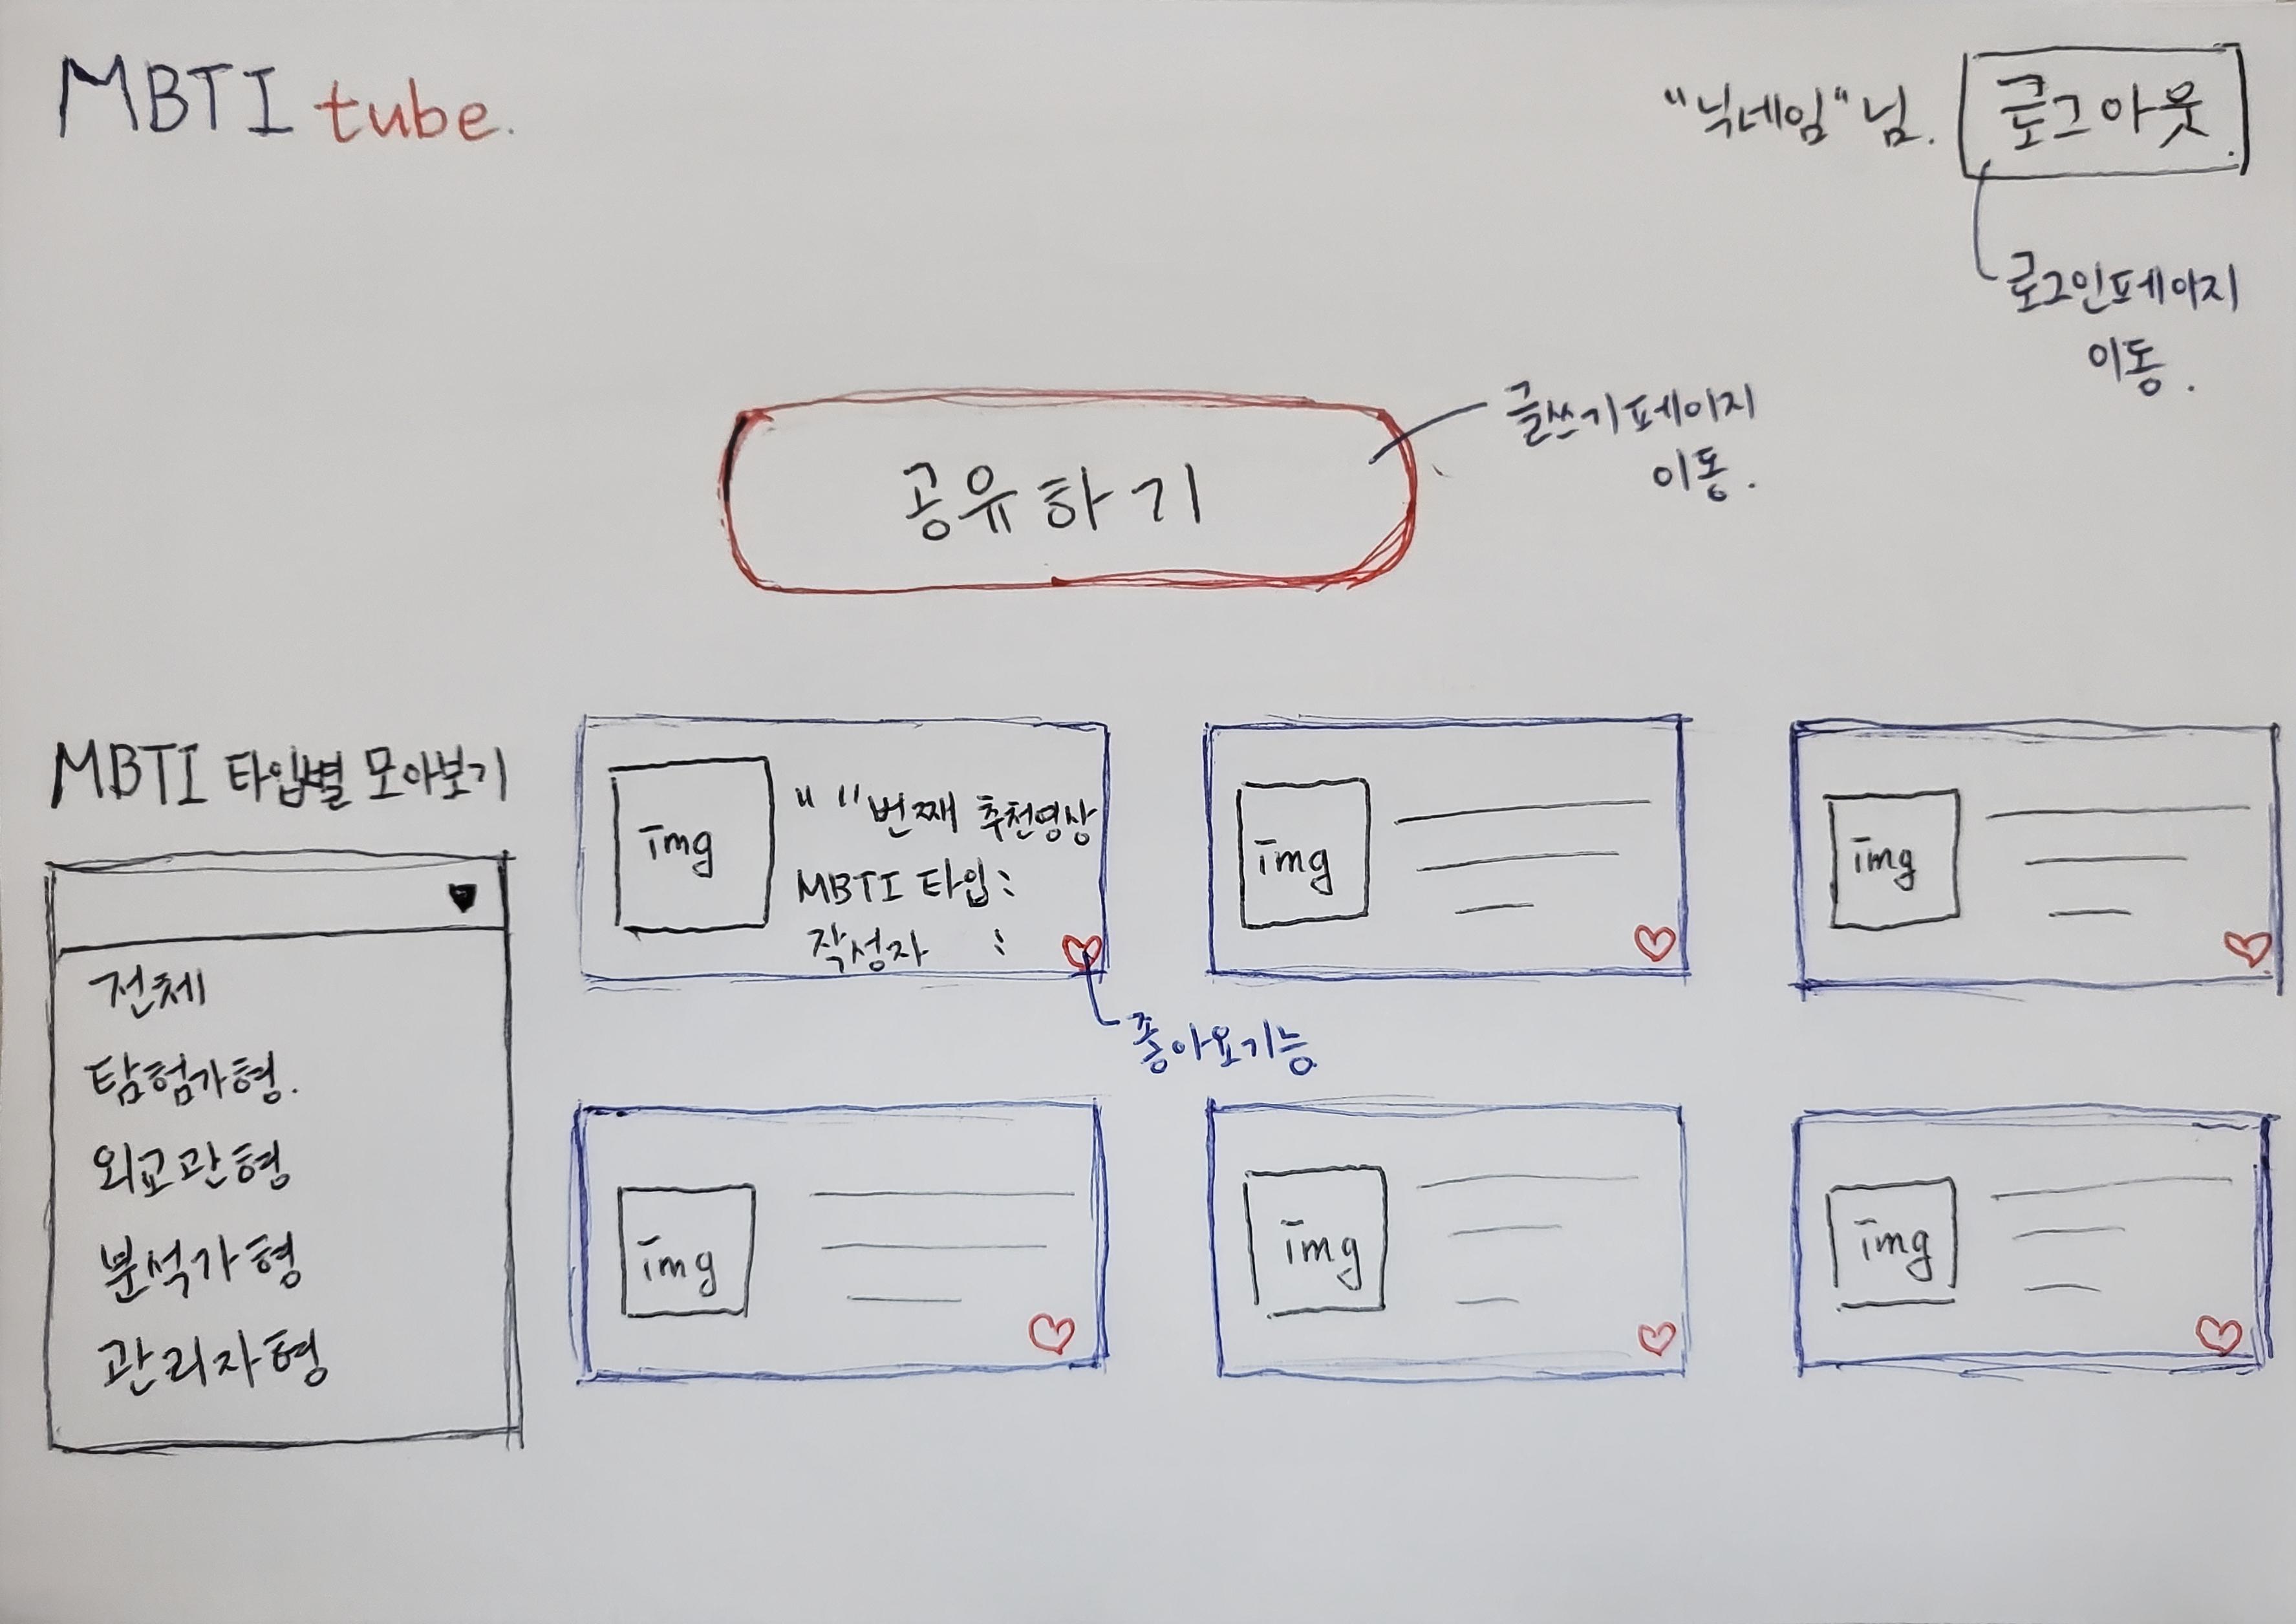 MBTI tube.
"닉네임"님.
로그아웃.
로그인페이지
이동.
공유하기
글쓰기페이지
이동.
MBTI 타입별 모아보기
전체
탐험가형.
외교관형
분석가형
관리자형
img
" "번째 추천영상
MBTI 타입:
작성자 :
좋아요기능
img
img
img
img
img